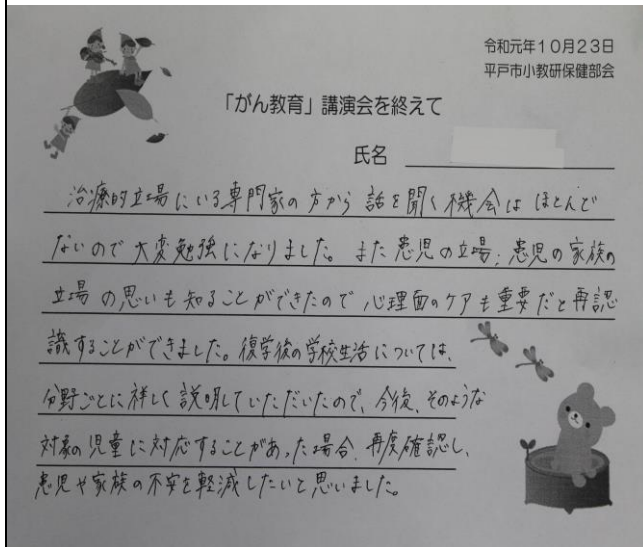 令和元年10月23日
平戸市小教研保健部会
「がん教育」講演会を終えて
氏名
治療的立場にいる専門家の方から話を聞く機会はほとんど
ないので大変勉強になりました。また患児の立場、患児の家族の
立場の思いも知ることができたので心理面のケアも重要だと再認
識することができました。復学後の学校生活については、
分野ごとに詳しく説明していただいたので、今後、そのような
対象の児童に対応することがあった場合、再度確認し、
患児や家族の不安を軽減したいと思いました。